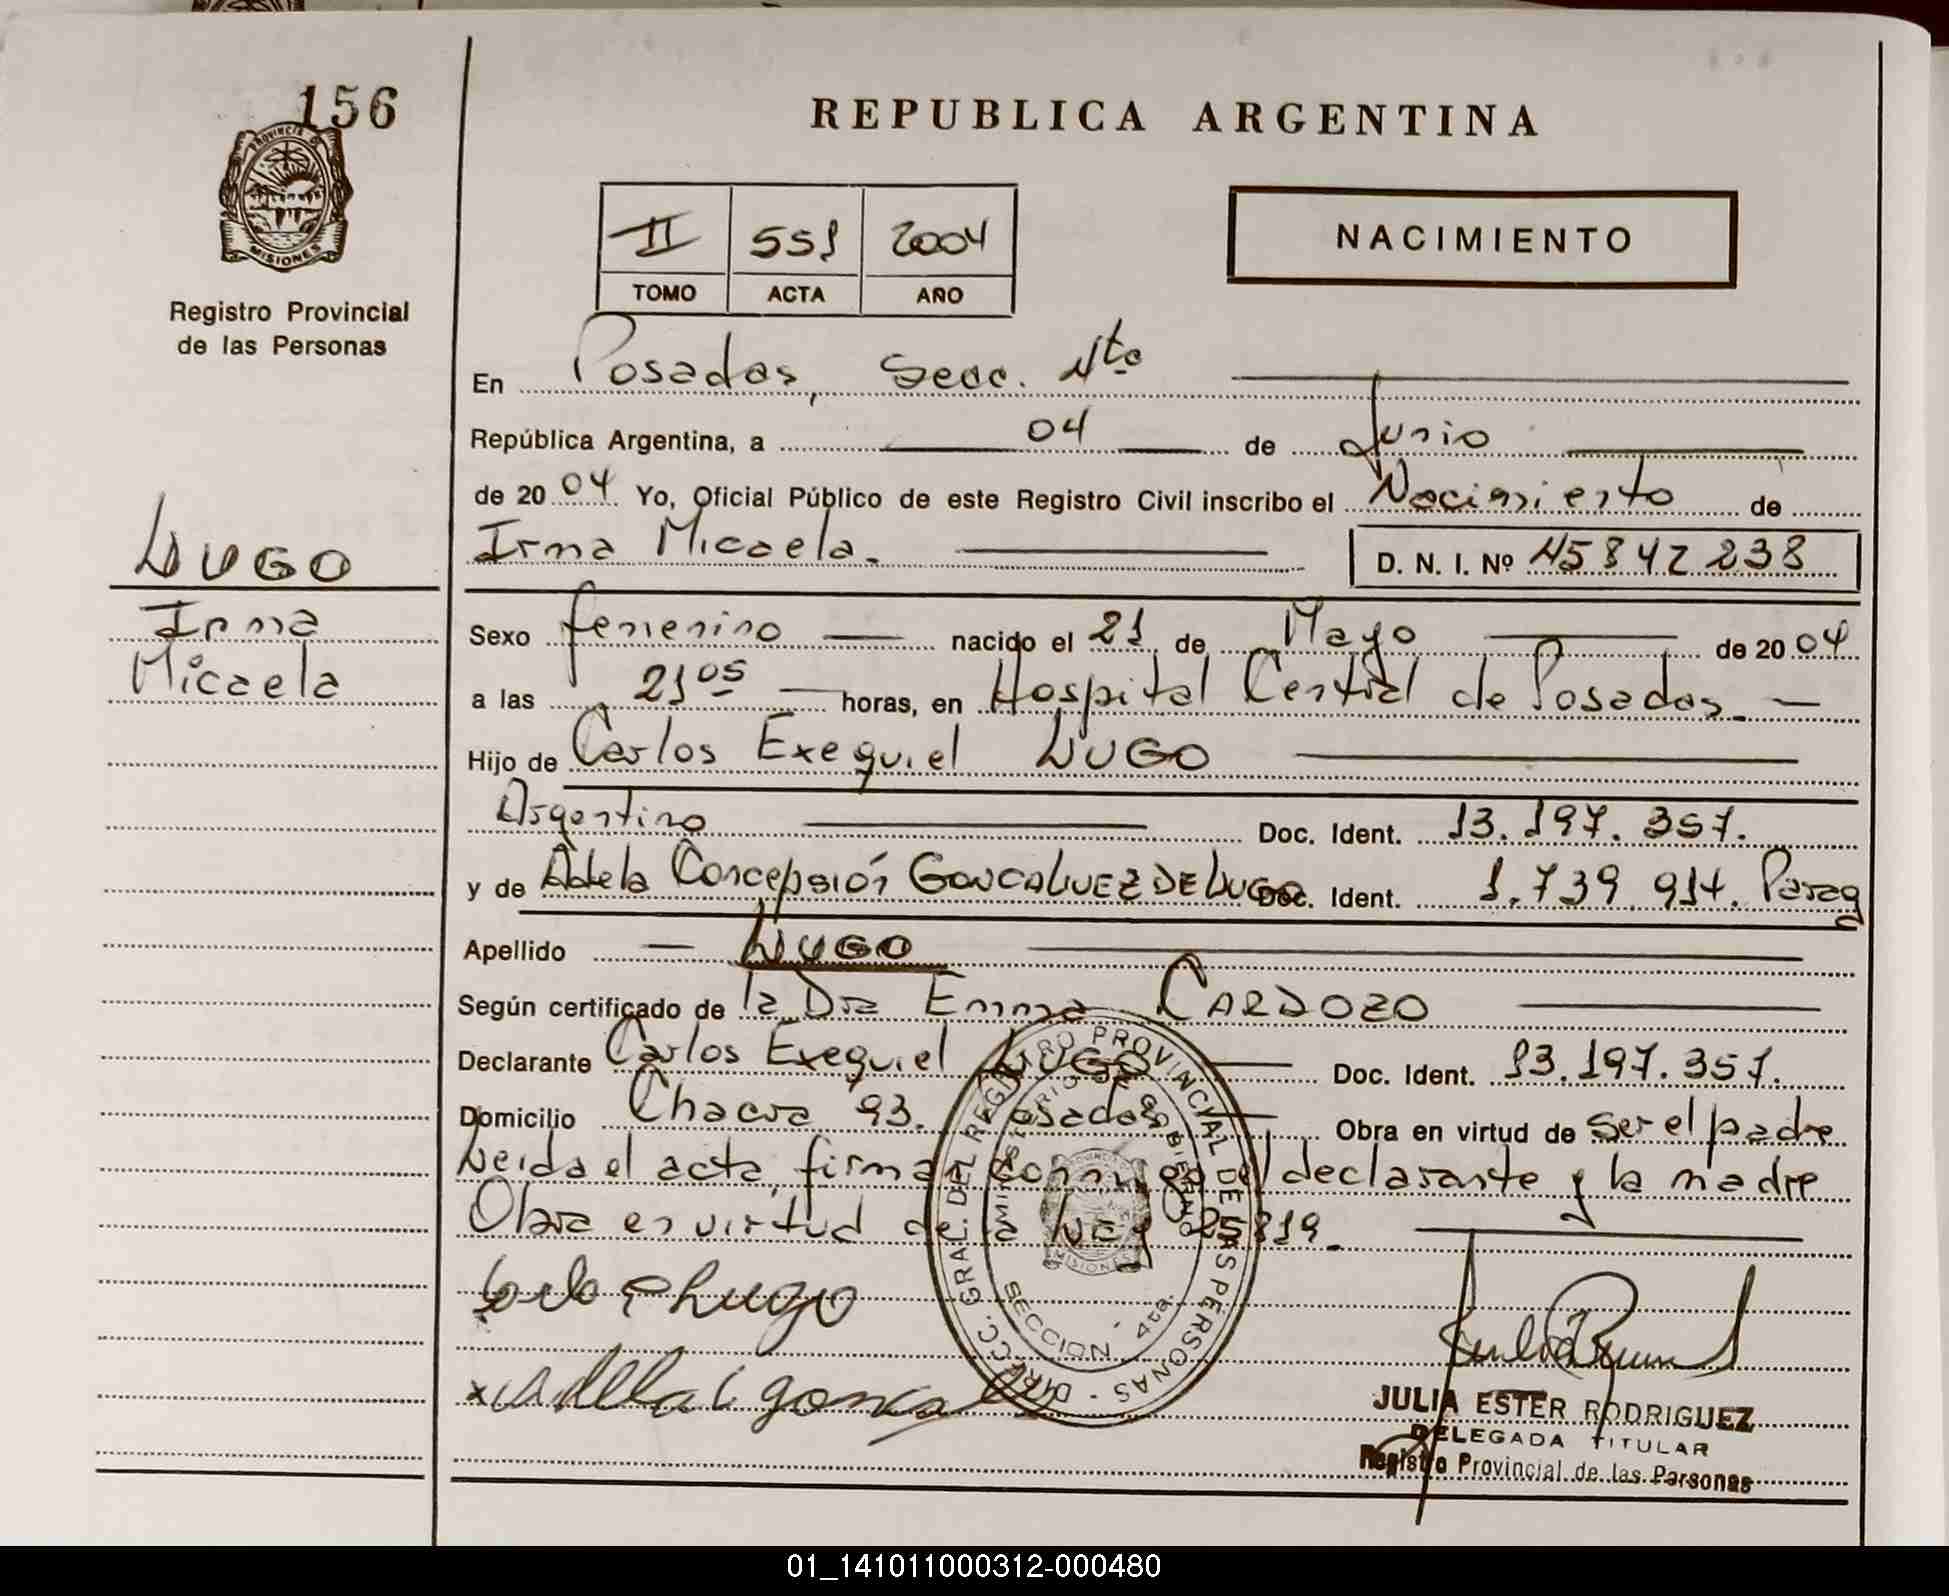 156
PROVINCIA D
MISIONES
Registro Provincial
de las Personas
REPUBLICA ARGENTINA
II 551 2004
TOMO ACTA AÑO
NACIMIENTO
En Posadas, Secc. 4ta
República Argentina, a 04 de Junio
de 2004 Yo, Oficial Público de este Registro Civil inscribo el Nacimiento de
Irma Micaela. D. N. I. Nº 45842238
LUGO
Irma
Micaela
Sexo femenino nacido el 21 de Mayo de 2004
a las 21 05 horas, en Hospital Central de Posadas.
Hijo de Carlos Exequiel LUGO
Argentino Doc. Ident. 13.197.357.
y de Adela Concepsión GONCALUEZ DE LUGO Doc. Ident. 1.739.914. Parag
Apellido LUGO
Según certificado de la Dra Emma CARDOZO
Declarante Carlos Exequiel LUGO Doc. Ident. 13.197.357.
Domicilio Chacra 93. Posadas Obra en virtud de ser el padre
Leida el acta, firma conmigo el declarante y la madre
Obra en virtud de la Ley 25819.
DIRECC. GRAL. DEL REGISTRO PROVINCIAL DE LAS PERSONAS
MINISTERIO DE GOBIERNO
SECCION 4ta.
MISIONES
JULIA ESTER RODRIGUEZ
DELEGADA TITULAR
Registro Provincial de las Parsonas
01_141011000312-000480